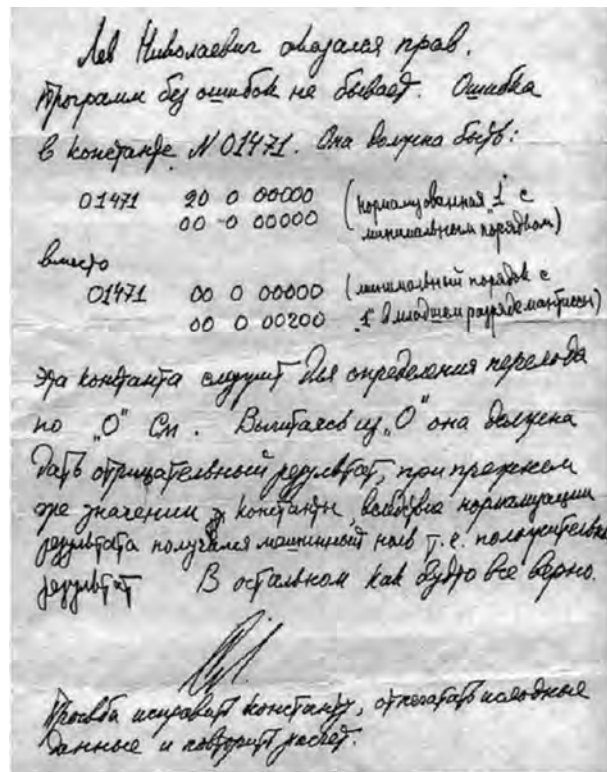 Лев Николаевич оказался прав.
Программ без ошибок не бывает. Ошибка
в константе N 01471. Она должна быть:
01471 20 0 00000 (нормализованная "1" с
00 0 00000 минимальным порядком)
вместо
01471 00 0 00000 (минимальный порядок с
00 0 00200 "1" в младшем разряде мантиссы)
Эта константа служит для определения перехода
по "0" См. Вычитаясь из "0" она должна
дать отрицательный результат, при прежнем
же значении константы, вследствие нормализации
результата получился машинный ноль т.е. положительный
результат В остальном как будто все верно.
Просьба исправить константу, отпечатать исходные
данные и повторить расчет.